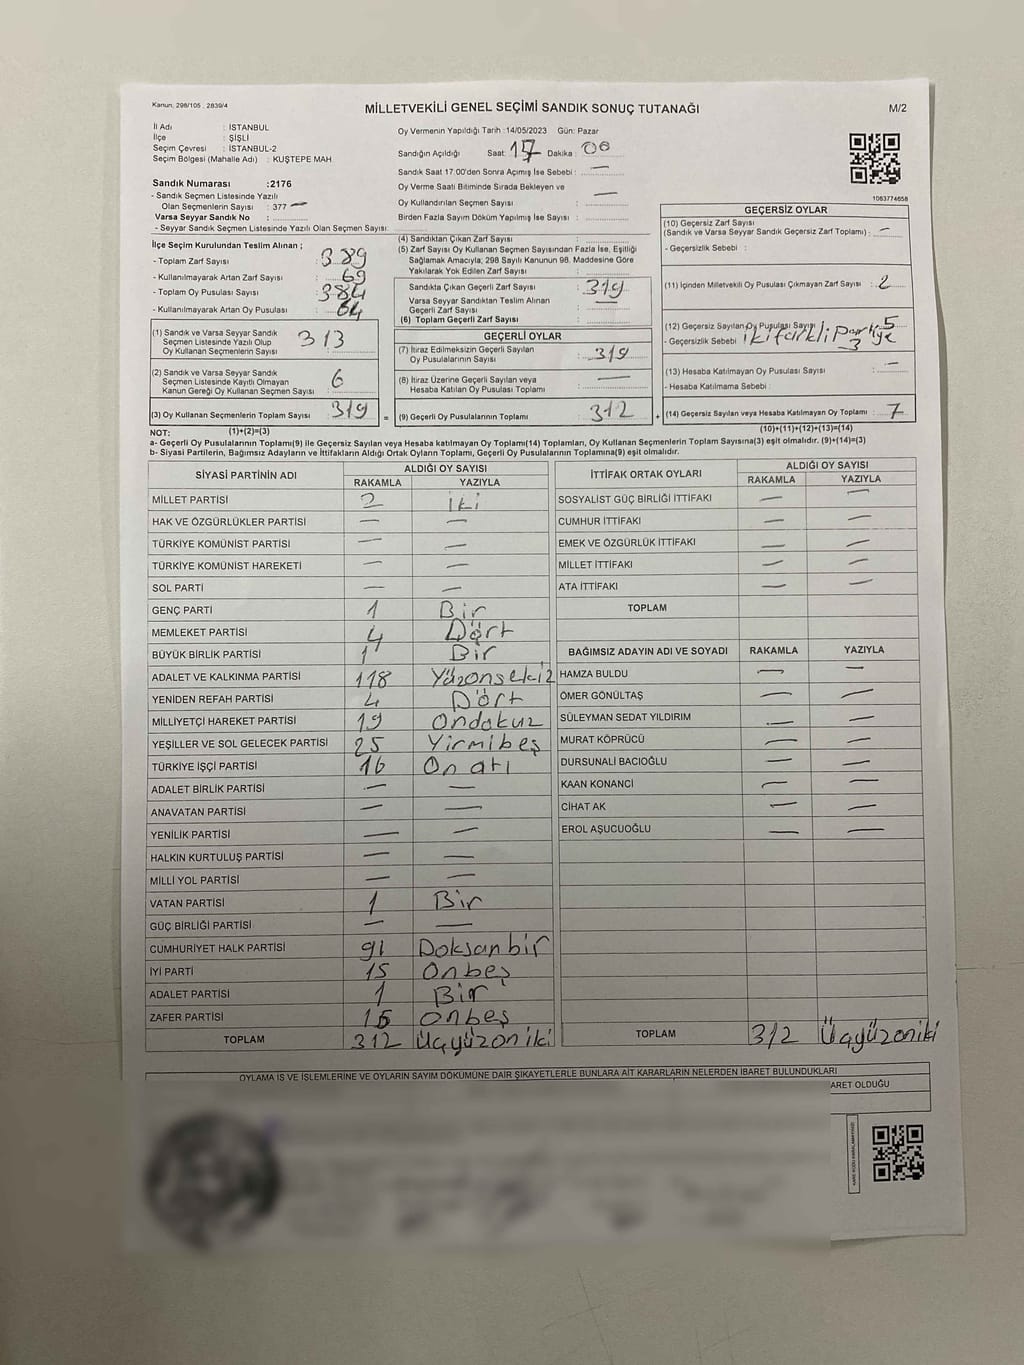 Kanun, 298/105 , 2839/4
MİLLETVEKİLİ GENEL SEÇİMİ SANDIK SONUÇ TUTANAĞI
M/2
İl Adı : İSTANBUL
İlçe : ŞİŞLİ
Seçim Çevresi : İSTANBUL-2
Seçim Bölgesi (Mahalle Adı) : KUŞTEPE MAH.
Sandık Numarası :2176
- Sandık Seçmen Listesinde Yazılı
Olan Seçmenlerin Sayısı : 377 —
Varsa Seyyar Sandık No :
- Seyyar Sandık Seçmen Listesinde Yazılı Olan Seçmen Sayısı:
Oy Vermenin Yapıldığı Tarih :14/05/2023 Gün: Pazar
Sandığın Açıldığı Saat: 17 Dakika : 00
Sandık Saat 17.00'den Sonra Açılmış İse Sebebi : —
Oy Verme Saati Bitiminde Sırada Bekleyen ve
Oy Kullandırılan Seçmen Sayısı : —
Birden Fazla Sayım Döküm Yapılmış İse Sayısı :
1063774658
İlçe Seçim Kurulundan Teslim Alınan ;
- Toplam Zarf Sayısı : 389
- Kullanılmayarak Artan Zarf Sayısı : 69
- Toplam Oy Pusulası Sayısı : 384
- Kullanılmayarak Artan Oy Pusulası : 64
(1) Sandık ve Varsa Seyyar Sandık
Seçmen Listesinde Yazılı Olup
Oy Kullanan Seçmenlerin Sayısı : 313
(2) Sandık ve Varsa Seyyar Sandık
Seçmen Listesinde Kayıtlı Olmayan
Kanun Gereği Oy Kullanan Seçmen Sayısı : 6
(3) Oy Kullanan Seçmenlerin Toplam Sayısı : 319 =
(1)+(2)=(3)
(4) Sandıktan Çıkan Zarf Sayısı :
(5) Zarf Sayısı Oy Kullanan Seçmen Sayısından Fazla İse, Eşitliği
Sağlamak Amacıyla; 298 Sayılı Kanunun 98. Maddesine Göre
Yakılarak Yok Edilen Zarf Sayısı :
Sandıkta Çıkan Geçerli Zarf Sayısı : 319
Varsa Seyyar Sandıktan Teslim Alınan
Geçerli Zarf Sayısı : —
(6) Toplam Geçerli Zarf Sayısı :
GEÇERLİ OYLAR
(7) İtiraz Edilmeksizin Geçerli Sayılan
Oy Pusulalarının Sayısı : 319
(8) İtiraz Üzerine Geçerli Sayılan veya
Hesaba Katılan Oy Pusulası Toplamı : —
(9) Geçerli Oy Pusulalarının Toplamı : 312 +
GEÇERSİZ OYLAR
(10) Geçersiz Zarf Sayısı
(Sandık ve Varsa Seyyar Sandık Geçersiz Zarf Toplamı) : —
- Geçersizlik Sebebi :
(11) İçinden Milletvekili Oy Pusulası Çıkmayan Zarf Sayısı : 2
(12) Geçersiz Sayılan Oy Pusulası Sayısı : 5
- Geçersizlik Sebebi : iki farklı 3
(13) Hesaba Katılmayan Oy Pusulası Sayısı : —
- Hesaba Katılmama Sebebi :
(14) Geçersiz Sayılan veya Hesaba Katılmayan Oy Toplamı : 7
(10)+(11)+(12)+(13)=(14)
NOT:
a- Geçerli Oy Pusulalarının Toplamı(9) ile Geçersiz Sayılan veya Hesaba katılmayan Oy Toplamı(14) Toplamları, Oy Kullanan Seçmenlerin Toplam Sayısına(3) eşit olmalıdır. (9)+(14)=(3)
b- Siyasi Partilerin, Bağımsız Adayların ve İttifakların Aldığı Ortak Oyların Toplamı, Geçerli Oy Pusulalarının Toplamına(9) eşit olmalıdır.
SİYASİ PARTİNİN ADI ALDIĞI OY SAYISI
RAKAMLA YAZIYLA
MİLLET PARTİSİ 2 iki
HAK VE ÖZGÜRLÜKLER PARTİSİ — —
TÜRKİYE KOMÜNİST PARTİSİ — —
TÜRKİYE KOMÜNİST HAREKETİ — —
SOL PARTİ — —
GENÇ PARTİ 1 Bir
MEMLEKET PARTİSİ 4 Dört
BÜYÜK BİRLİK PARTİSİ 1 Bir
ADALET VE KALKINMA PARTİSİ 118 Yüzonsekiz
YENİDEN REFAH PARTİSİ 4 Dört
MİLLİYETÇİ HAREKET PARTİSİ 19 Ondokuz
YEŞİLLER VE SOL GELECEK PARTİSİ 25 Yirmibeş
TÜRKİYE İŞÇİ PARTİSİ 16 On altı
ADALET BİRLİK PARTİSİ — —
ANAVATAN PARTİSİ — —
YENİLİK PARTİSİ — —
HALKIN KURTULUŞ PARTİSİ — —
MİLLİ YOL PARTİSİ — —
VATAN PARTİSİ 1 Bir
GÜÇ BİRLİĞİ PARTİSİ — —
CUMHURİYET HALK PARTİSİ 91 Doksanbir
İYİ PARTİ 15 Onbeş
ADALET PARTİSİ 1 Bir
ZAFER PARTİSİ 15 Onbeş
TOPLAM 312 Üçyüzon iki
İTTİFAK ORTAK OYLARI ALDIĞI OY SAYISI
RAKAMLA YAZIYLA
SOSYALİST GÜÇ BİRLİĞİ İTTİFAKI — —
CUMHUR İTTİFAKI — —
EMEK VE ÖZGÜRLÜK İTTİFAKI — —
MİLLET İTTİFAKI — —
ATA İTTİFAKI — —
TOPLAM
BAĞIMSIZ ADAYIN ADI VE SOYADI RAKAMLA YAZIYLA
HAMZA BULDU — —
ÖMER GÖNÜLTAŞ — —
SÜLEYMAN SEDAT YILDIRIM — —
MURAT KÖPRÜCÜ — —
DURSUNALİ BACIOĞLU — —
KAAN KONANCİ — —
CİHAT AK — —
EROL AŞUCUOĞLU — —
TOPLAM 312 Üçyüzoniki
OYLAMA İŞ VE İŞLEMLERİNE VE OYLARIN SAYIM DÖKÜMÜNE DAİR ŞİKAYETLERLE BUNLARA AİT KARARLARIN NELERDEN İBARET BULUNDUKLARI
ARET OLDUĞU